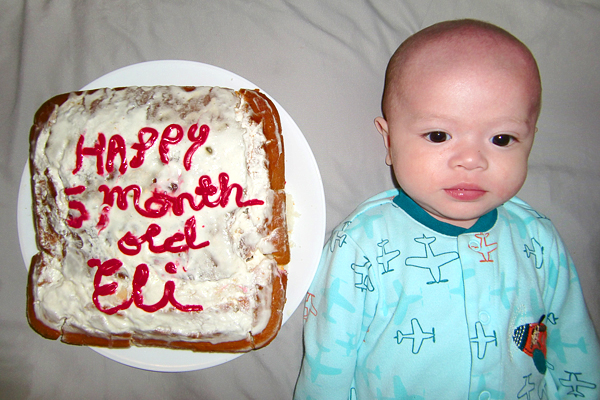 HAPPY
5 month
old
Eli